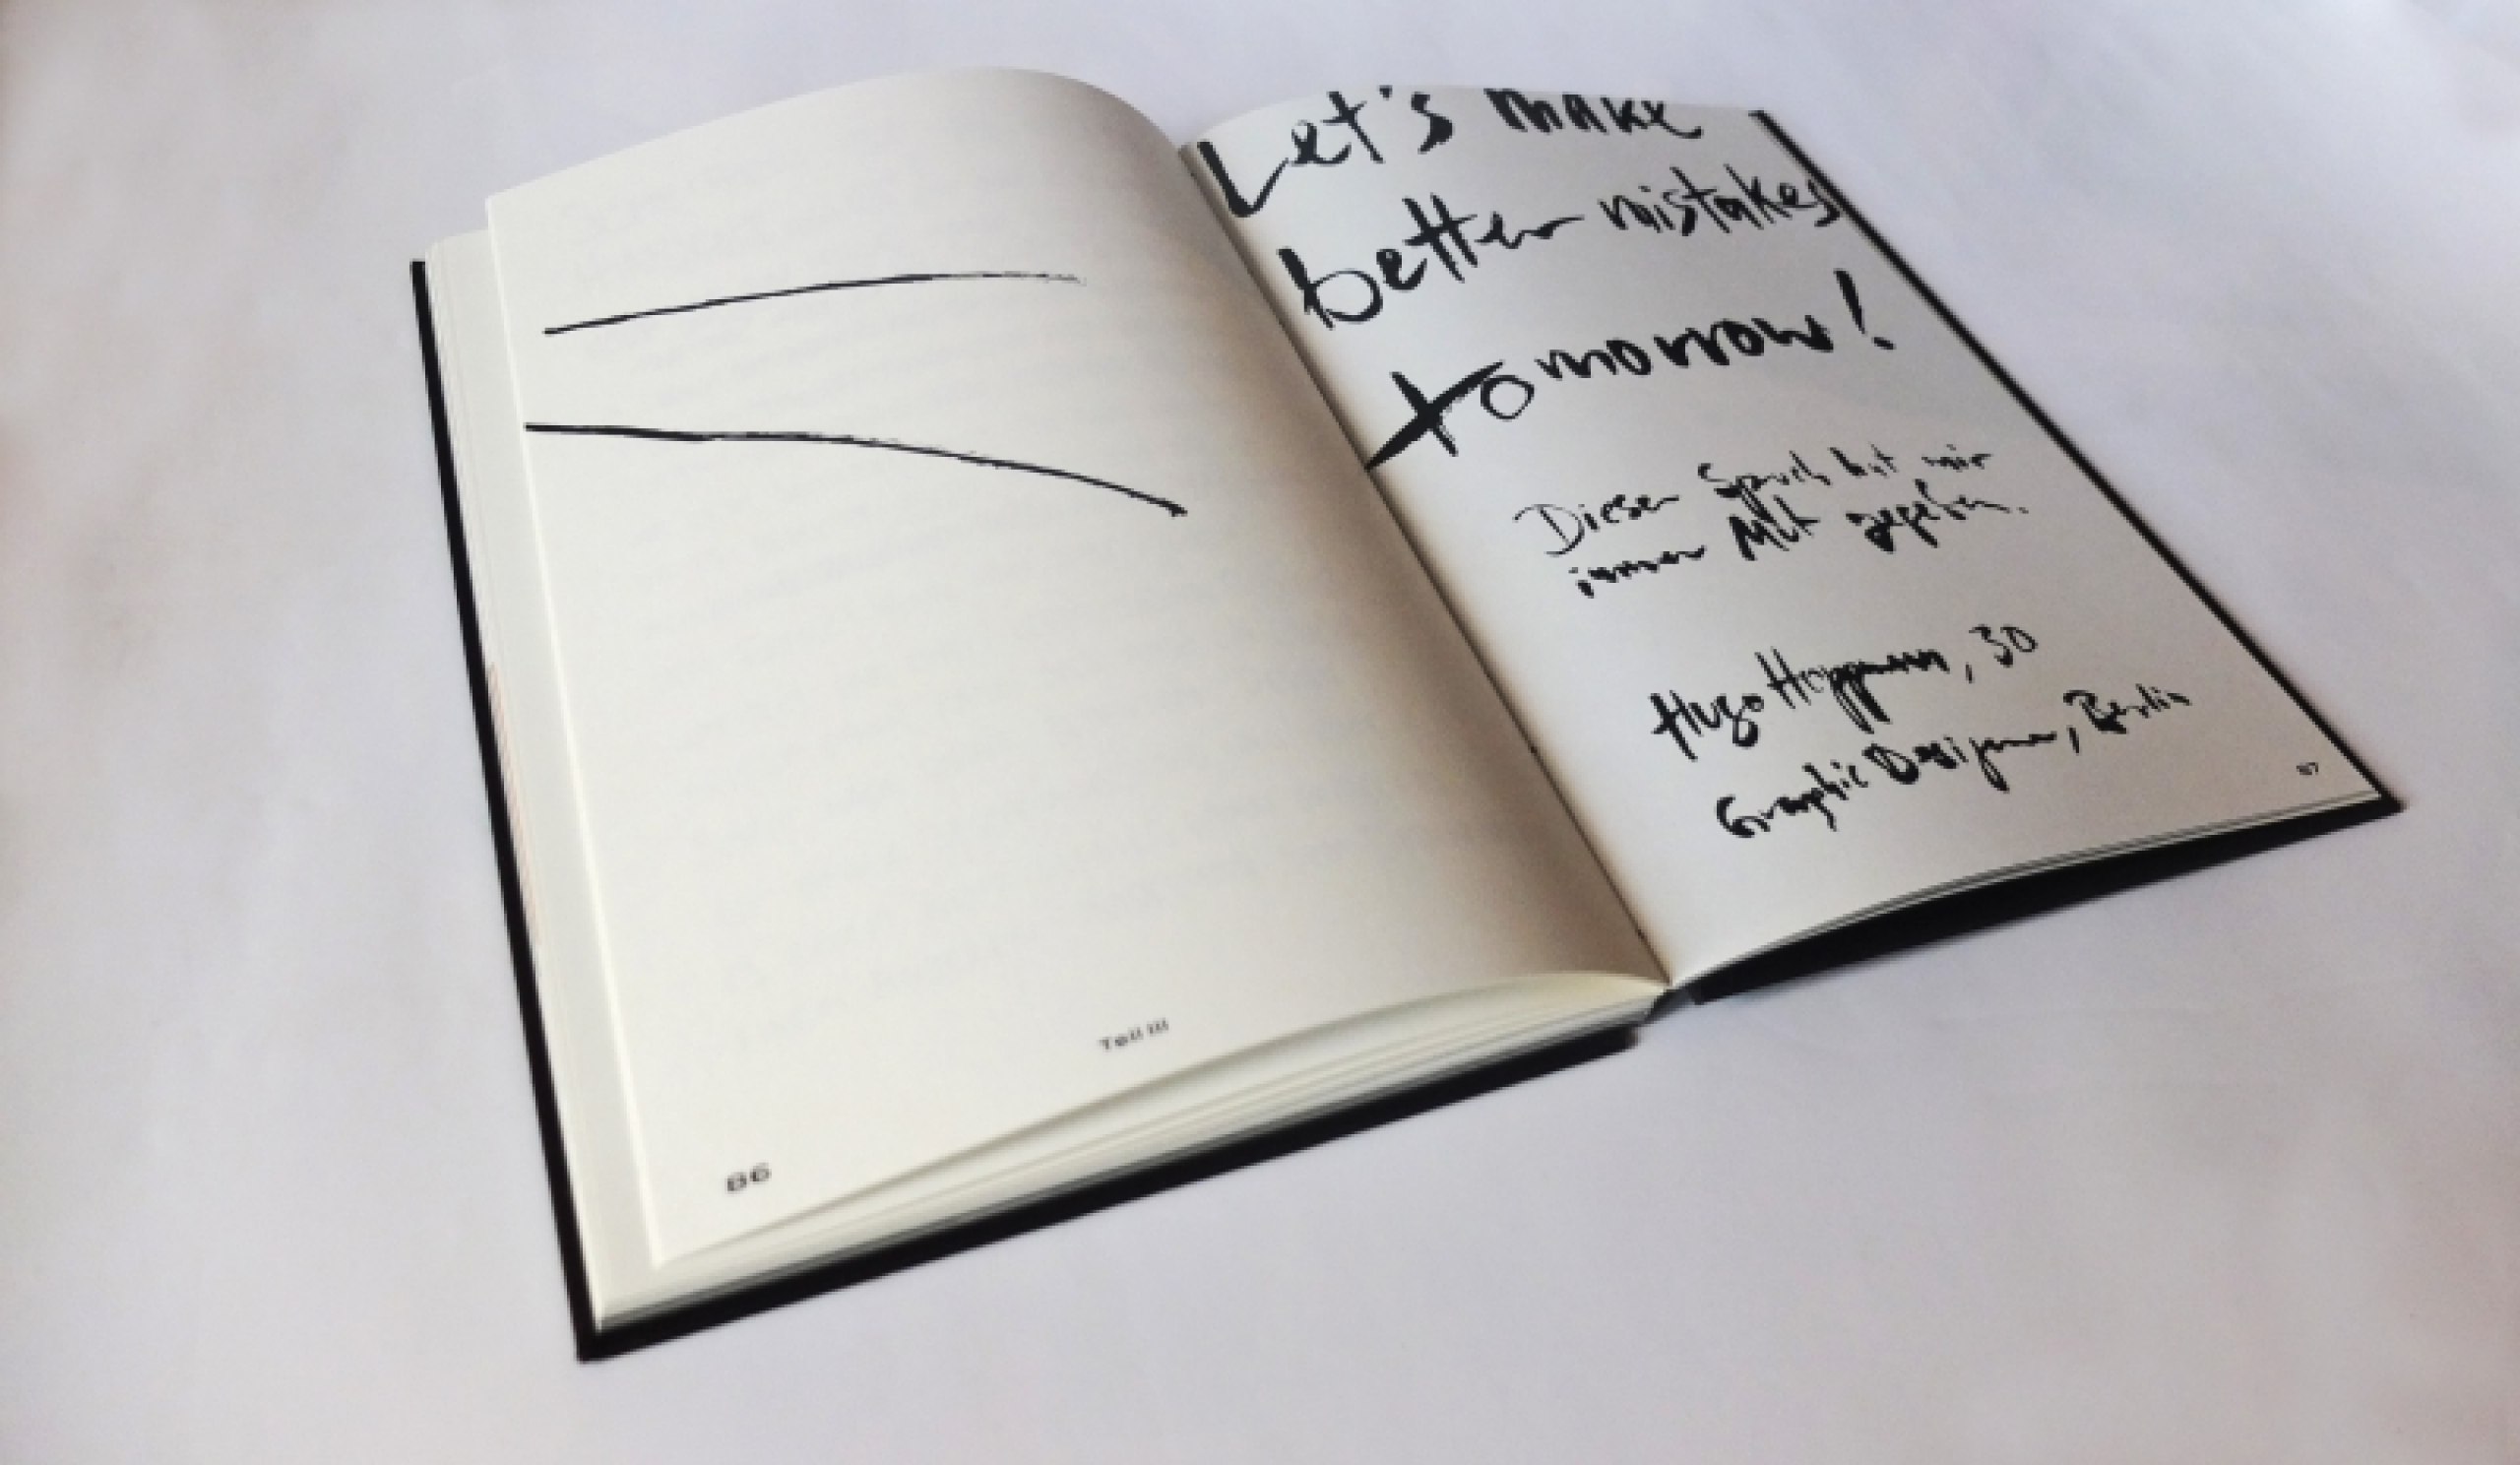 Teil III
86
Let's make
better mistakes
tomorrow!
Dieser Spruch hat mir
immer Mut gegeben.
Hugo Hoppmann, 30
Graphic Designer, Berlin
87